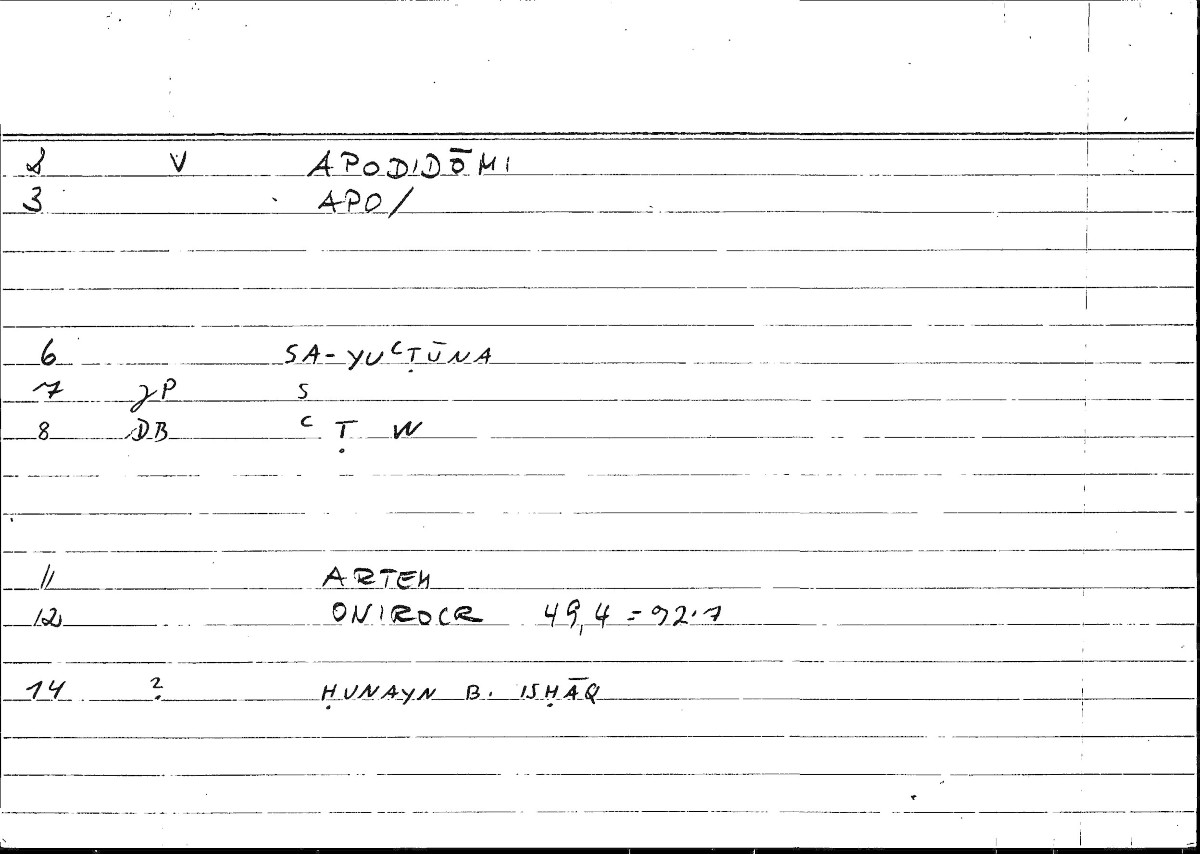 2 V APODIDŌMI
3 APO/
6 SA-YUʿṬŪNA
7 JP S
8 DB ʿ Ṭ W
11 ARTEM
12 ONIROCR 49,4 = 92.7
14 ? ḤUNAYN B. ISḤĀQ